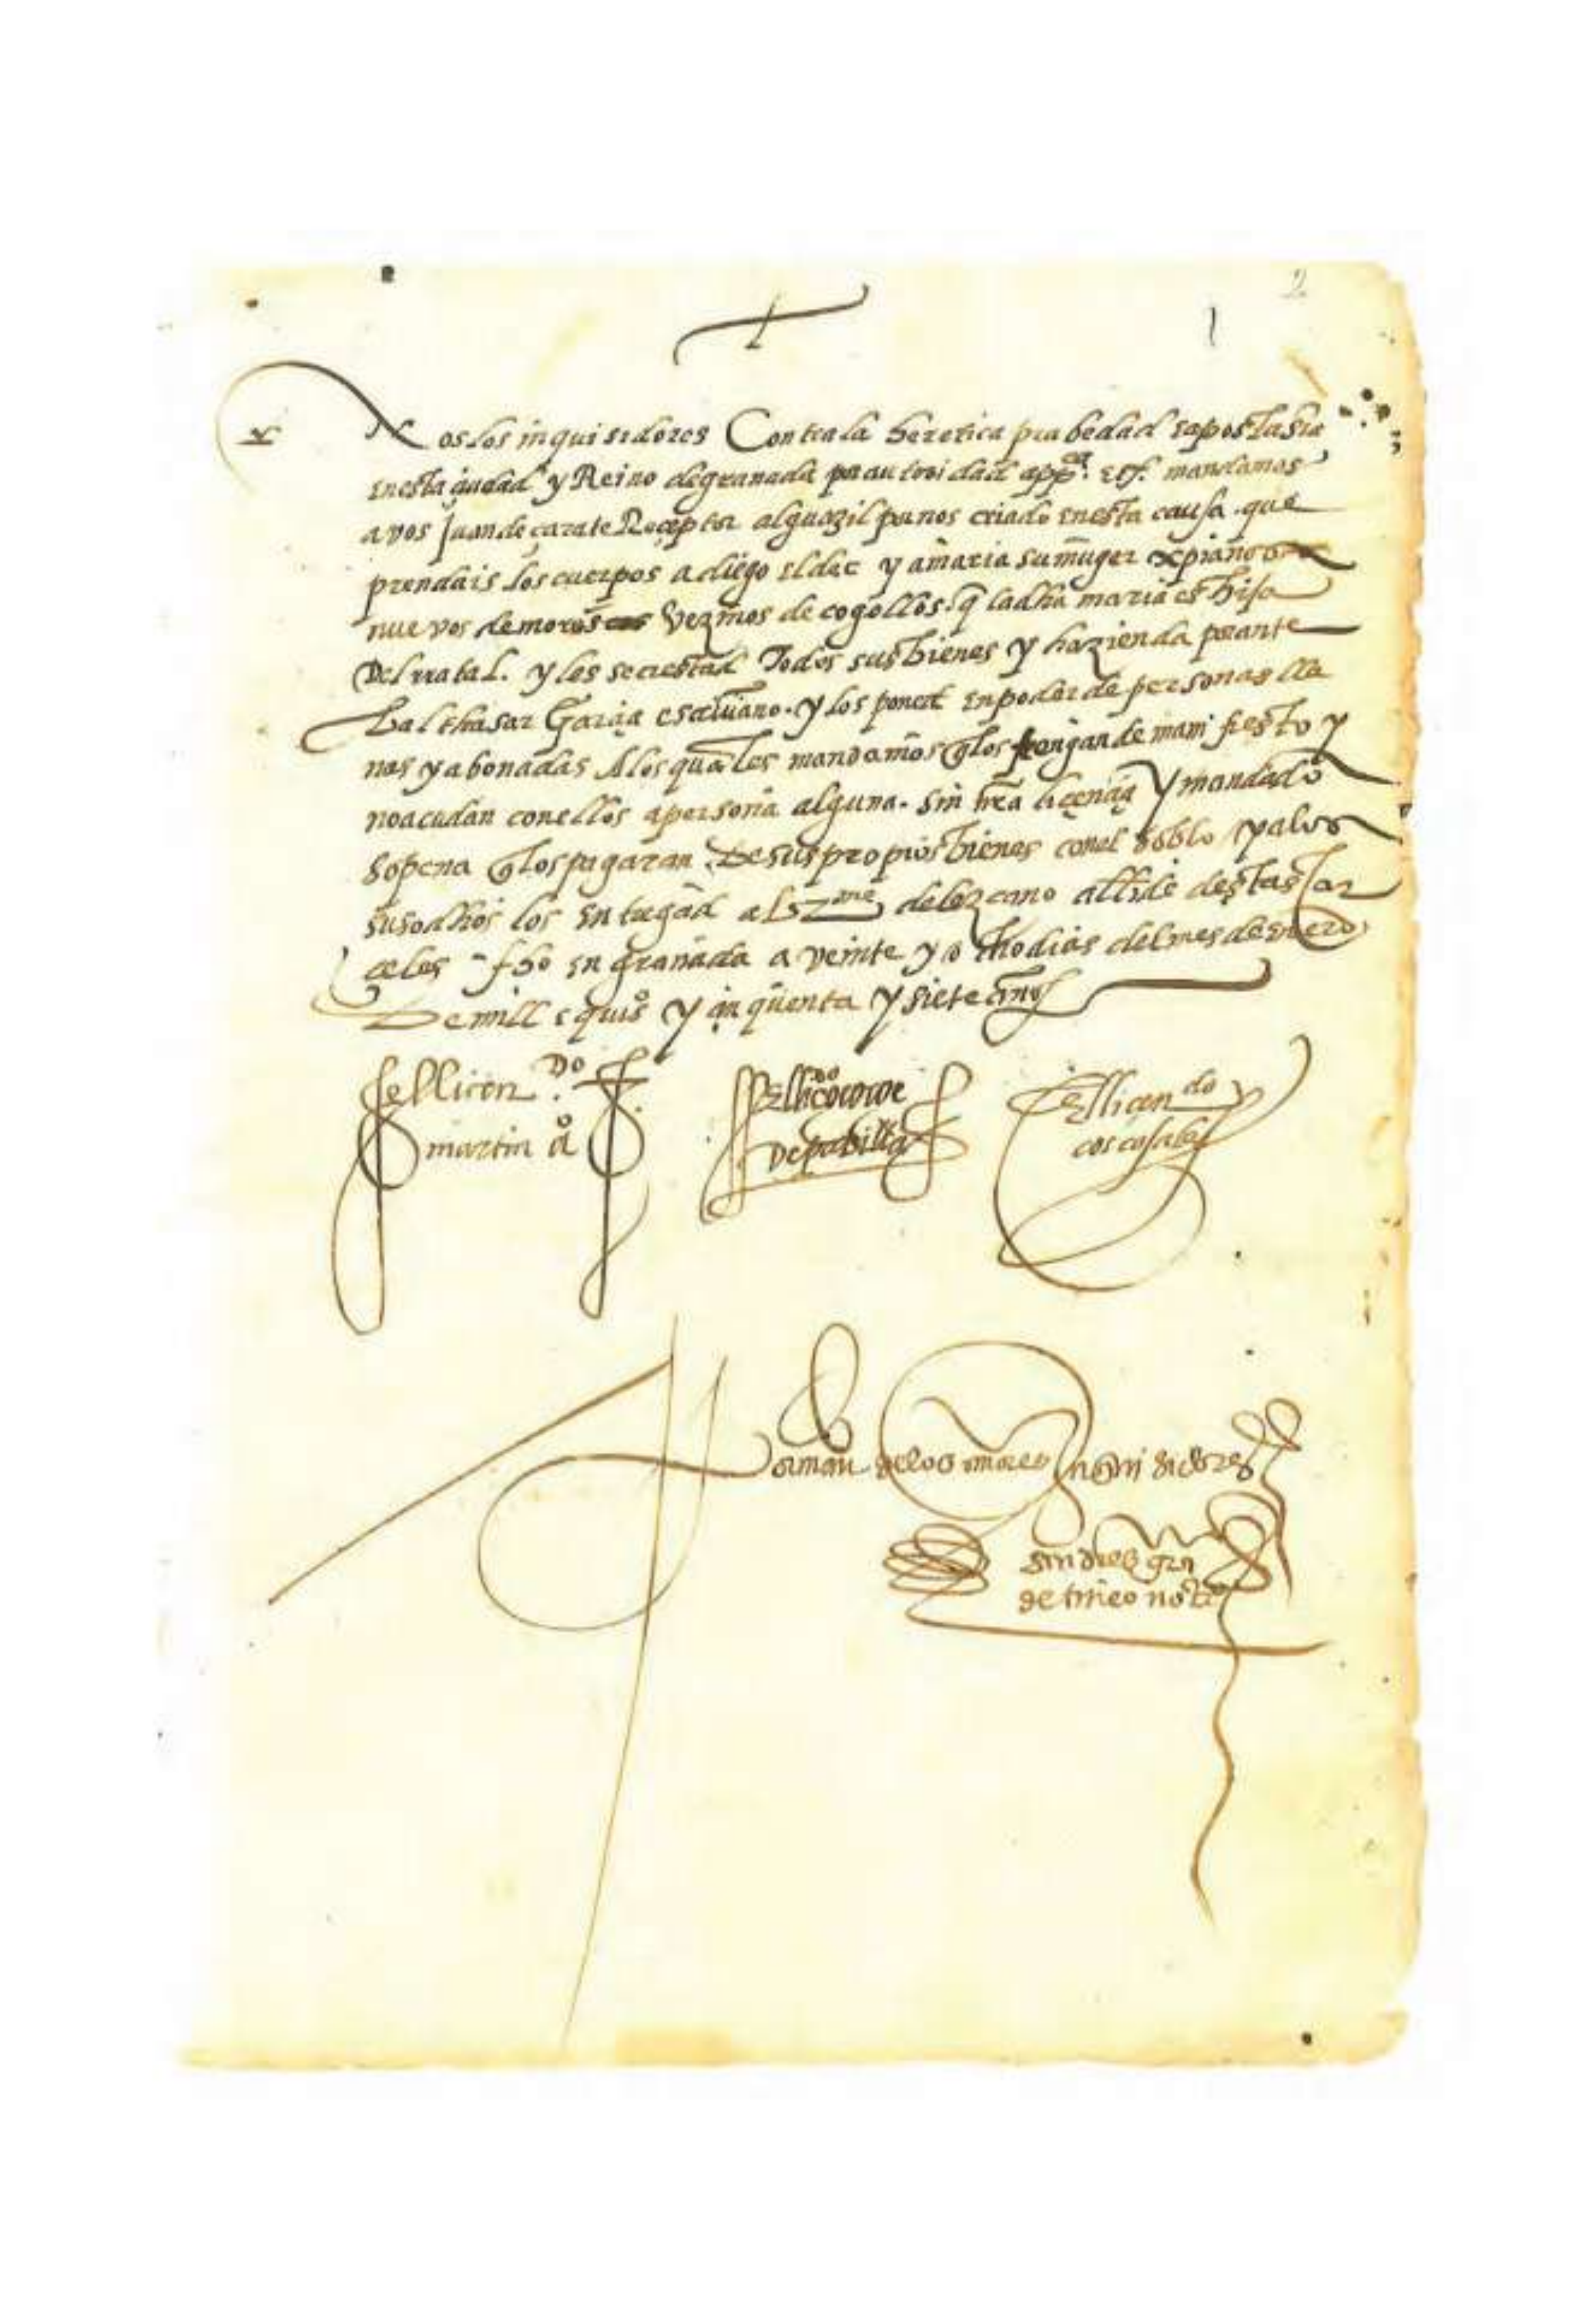 2
1
Nos los inquisidores Contra la heretica prabedad e apostasia
en esta çiudad y Reino de granada por autoridad appca. etc. mandamos
a vos Juan de çarate Reçeptor alguazil por nos criado en esta causa. que
prendais los cuerpos a diego el dec y a maria su muger xpianos
nuevos de moros vezinos de cogollos. q la dha maria es hija
Del rratal. y les secrestad Todos sus bienes y hazienda por ante
balthasar Garçia escrivano. y los poned en poder de personas lla
nas y abonadas A los quales mandamos q los tengan de manifiesto y
no acudan con ellos a persona alguna. sin nra liçençia y mandado
so pena q los pagaran De sus propios bienes con el doblo y a los
susodhos los entregad al de lezcano allde destas Car
çeles fho en granada a veinte y ocho dias del mes de enero
De mill e quios y çinquenta y siete años
el licen.do
martin aº
El licdo
De padilla
El licendo
coscojales
Por mandº de los inquisidores
de tineo notrio